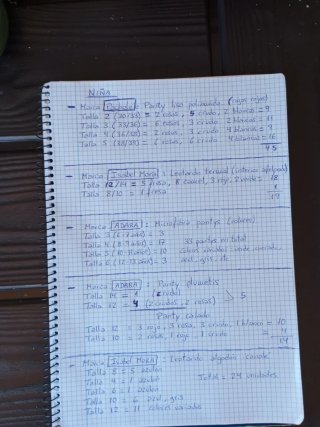 NIÑA
- Marca Pachola : Panty liso poliamida (cajas rojas)
Talla 2 (30/33) = 2 rosas, 5 crudo, 2 blancos = 9
Talla 3 (33/36) = 6 rosas, 3 crudo, 2 blancos = 11
Talla 4 (36/38) = 2 rosas, 3 crudo, 4 blancos = 9
Talla 5 (38/39) = 6 rosas, 6 crudo, 4 blancos = 16
45
- Marca Isabel Mora : Leotardo termal (interior afelpado)
Talla 12/14 = 5 rosa, 8 camel, 3 rojo, 2 verde = 18
Talla 8/10 = 1 rosa 1
19
- Marca ADARA : Microfibra pantys (colores)
Talla 3 (6-7 años) = 3
Talla 4 (8-9 años) = 17 33 pantys en total
Talla 5 (10-11 años) = 10 colores variados: verde,
Talla 6 (12-13 años) = 3 azul, gris, etc
- Marca ADARA : Panty
Talla 14 = 1 (crudo)
Talla 12 = 4 (2 crudos, 2 rosas) 5
Panty calado
Talla 12 = 3 rojo, 3 rosa, 3 crudo, 1 blanco = 10
Talla 10 = 2 rosa, 1 rojo, 1 crudo = 4
14
- Marca Isabel MORA : Leotardo algodón canalé
Talla 8 = 5 azulon
Talla 4 = 1 azulon
Talla 6 = 1 azulon Total = 24 unidades
Talla 10 = 6 azul, gris
Talla 12 = 11 colores variados